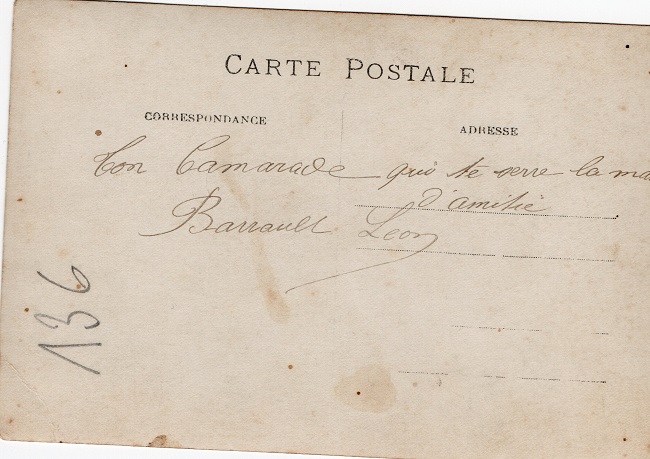 CARTE POSTALE
CORRESPONDANCE
ADRESSE
Ton Camarade qui te serre la ma
d'amitié
Barrault Léon
136